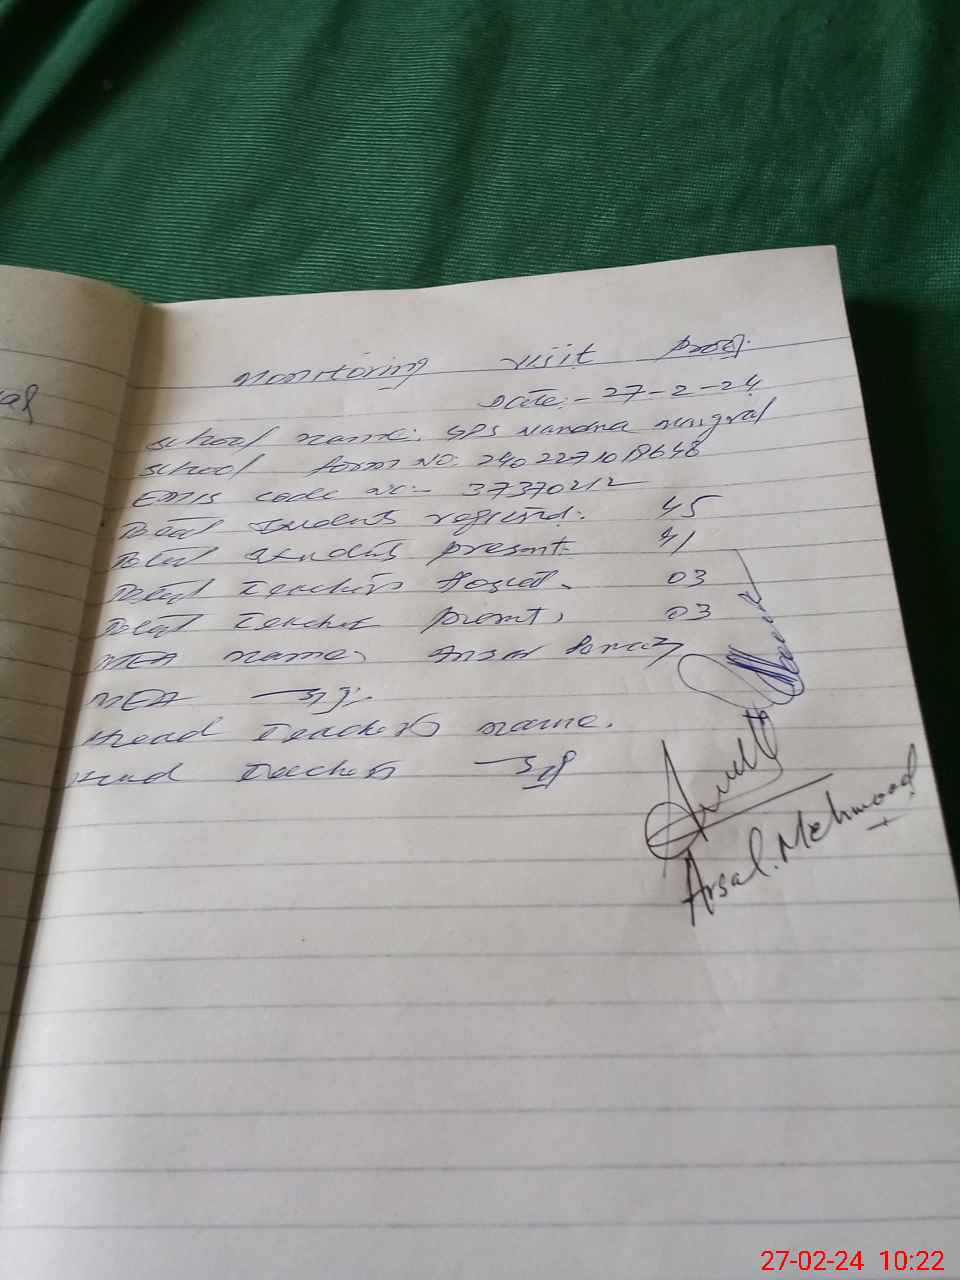 Monitoring visit proof.
Date:- 27-2-24
School name: GPS Nandna
School form NO:
EMIS code no:- 37370212
Total students 45
Total students present. 41
Total Teachers 03
Total Teacher 03
MEA name:
MEA sig.
Head Teachers name.
Head Teachers sig
Arsal. Mehmood
27-02-24 10:22